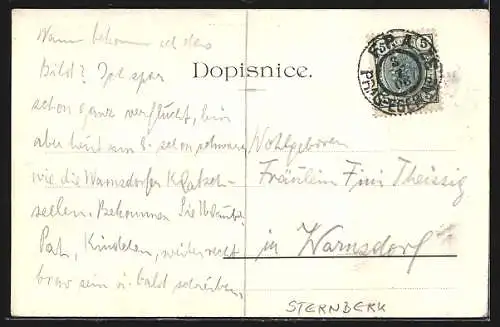 Wann bekomm ich das
Bild? Ich
schon ganz verflucht, bin
aber heut am 8. schon schwarz
wie die Warnsdorfer Klatsch-
seelen. Bekommen Sie
Pat, Kindchen, weiter recht
brav sein u. bald schreiben.
Dopisnice.
Wohlgeboren
Fräulein Finni Theissig
in Warnsdorf
STERNBERK